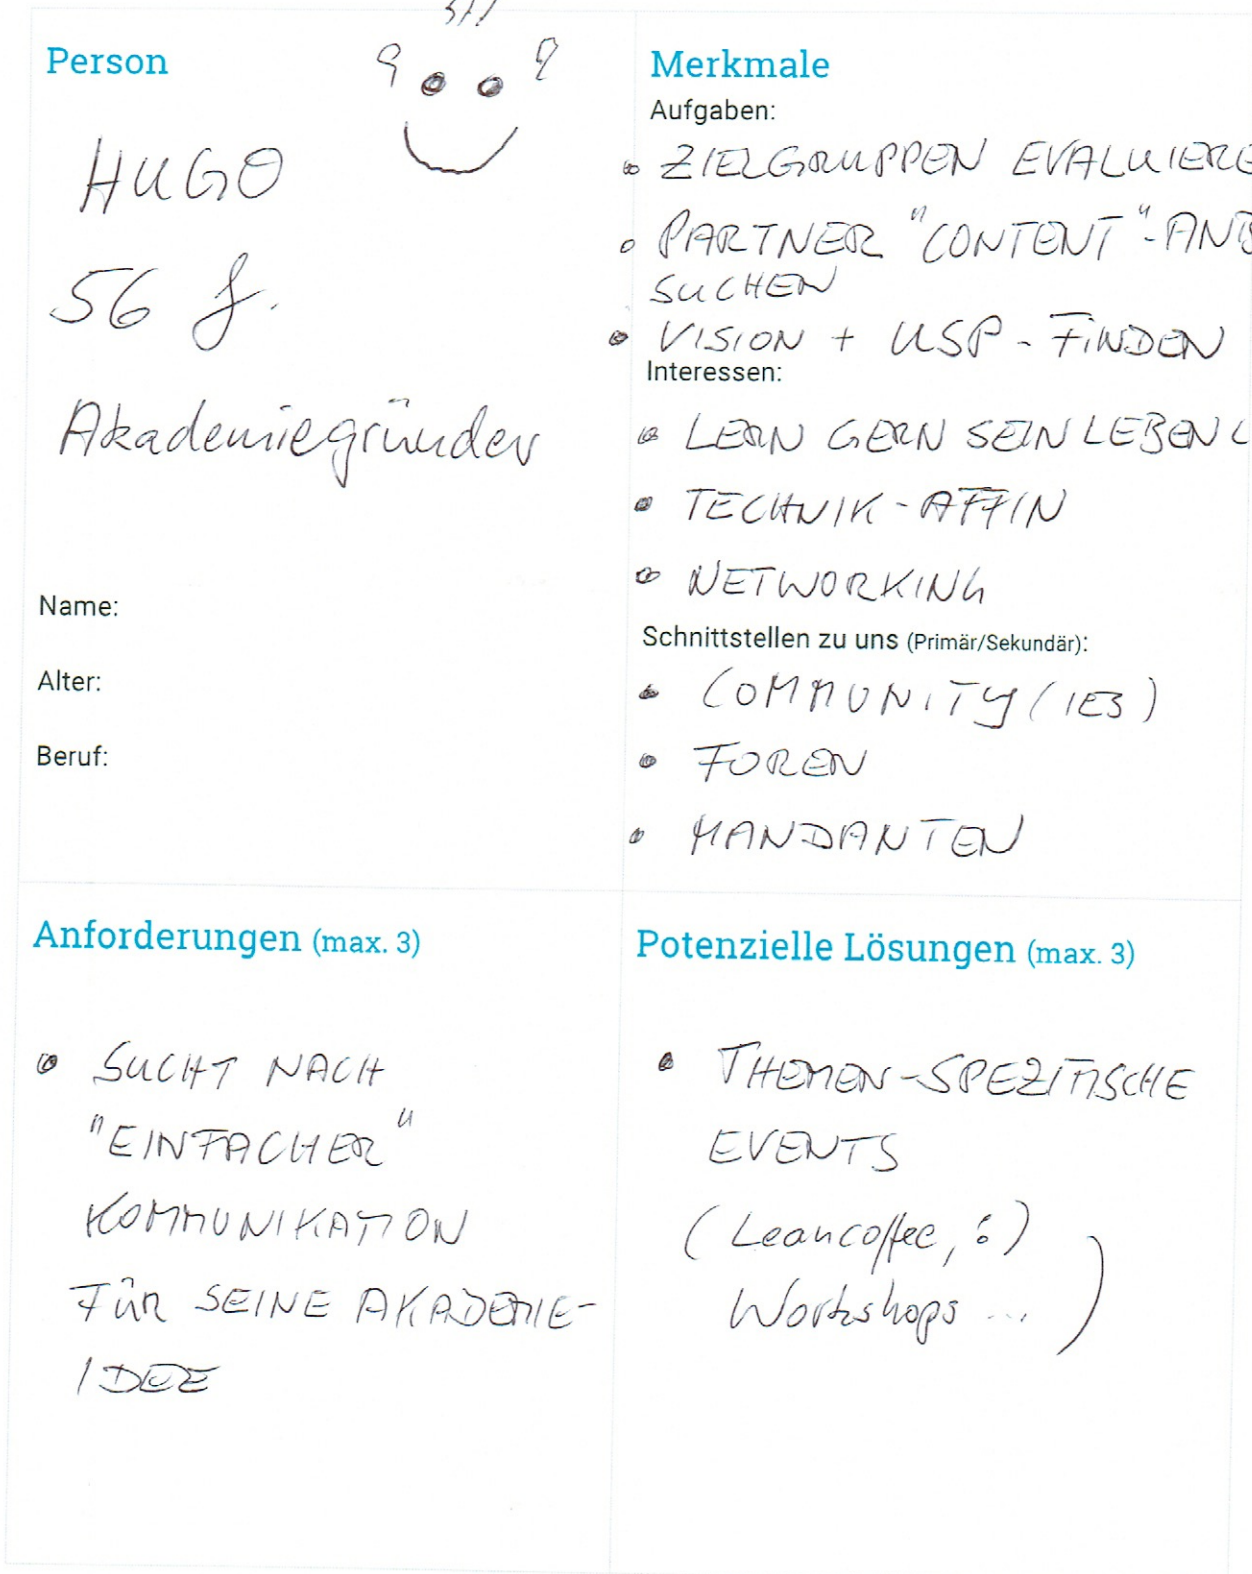 Person
HUGO
56 J.
Akademiegründer
Name:
Alter:
Beruf:
Merkmale
Aufgaben:
• ZIELGRUPPEN EVALUIERE
• PARTNER "CONTENT"-ANB
SUCHEN
• VISION + USP-FINDEN
Interessen:
• LERN GERN SEIN LEBEN L
• TECHNIK-AFFIN
• NETWORKING
Schnittstellen zu uns (Primär/Sekundär):
• COMMUNITY (IES)
• FOREN
• MANDANTEN
Anforderungen (max. 3)
• SUCHT NACH
"EINFACHER"
KOMMUNIKATION
FÜR SEINE AKADEMIE-
IDEE
Potenzielle Lösungen (max. 3)
• THEMEN-SPEZIFISCHE
EVENTS
(Leancoffee, :)
Workshops ... )